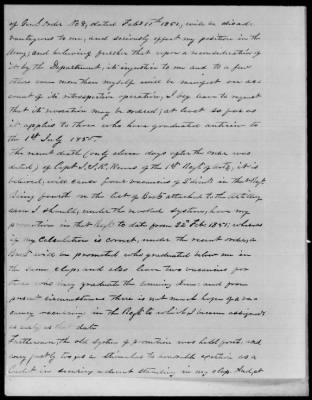 of Gen'l Order No 8, dated Feb'y 11th 1851, will be disad-
vantageous to me, and seriously affect my position in the
Army; and believing further that upon a reconsideration of
it by the Department, its injustice to me and to a few
others even more than myself will be manifest on ac-
count of its retrospective operation, I beg leave to request
that its revocation may be ordered; at least so far as
it applies to those who have graduated anterior to
the 1st July 1851.
The recent death (only eleven days after the order was
dated) of Capt. of the 1st Reg't of Arty, it is
believed, will cause four vacancies of 2d Lieut in that Reg't.
Being fourth in the list of Brevets attached to the Artillery
arm I should, under the revoked system, have my
promotion in that Reg't to date from 22d Feb. 1851; whereas
if my Calculation is correct, under the recent order, a
Brevet will be promoted who graduated below me in
the same class, and also leave two vacancies for
those who may graduate the coming June; and from
present circumstances there is not much hope of a va-
cancy occurring in the Reg't to which I become assigned
as early as that date.
Furthermore, the old system of promotion was held forth, and
very justly too, as a stimulus to exertion as a
Cadet in securing a decent standing in my class.